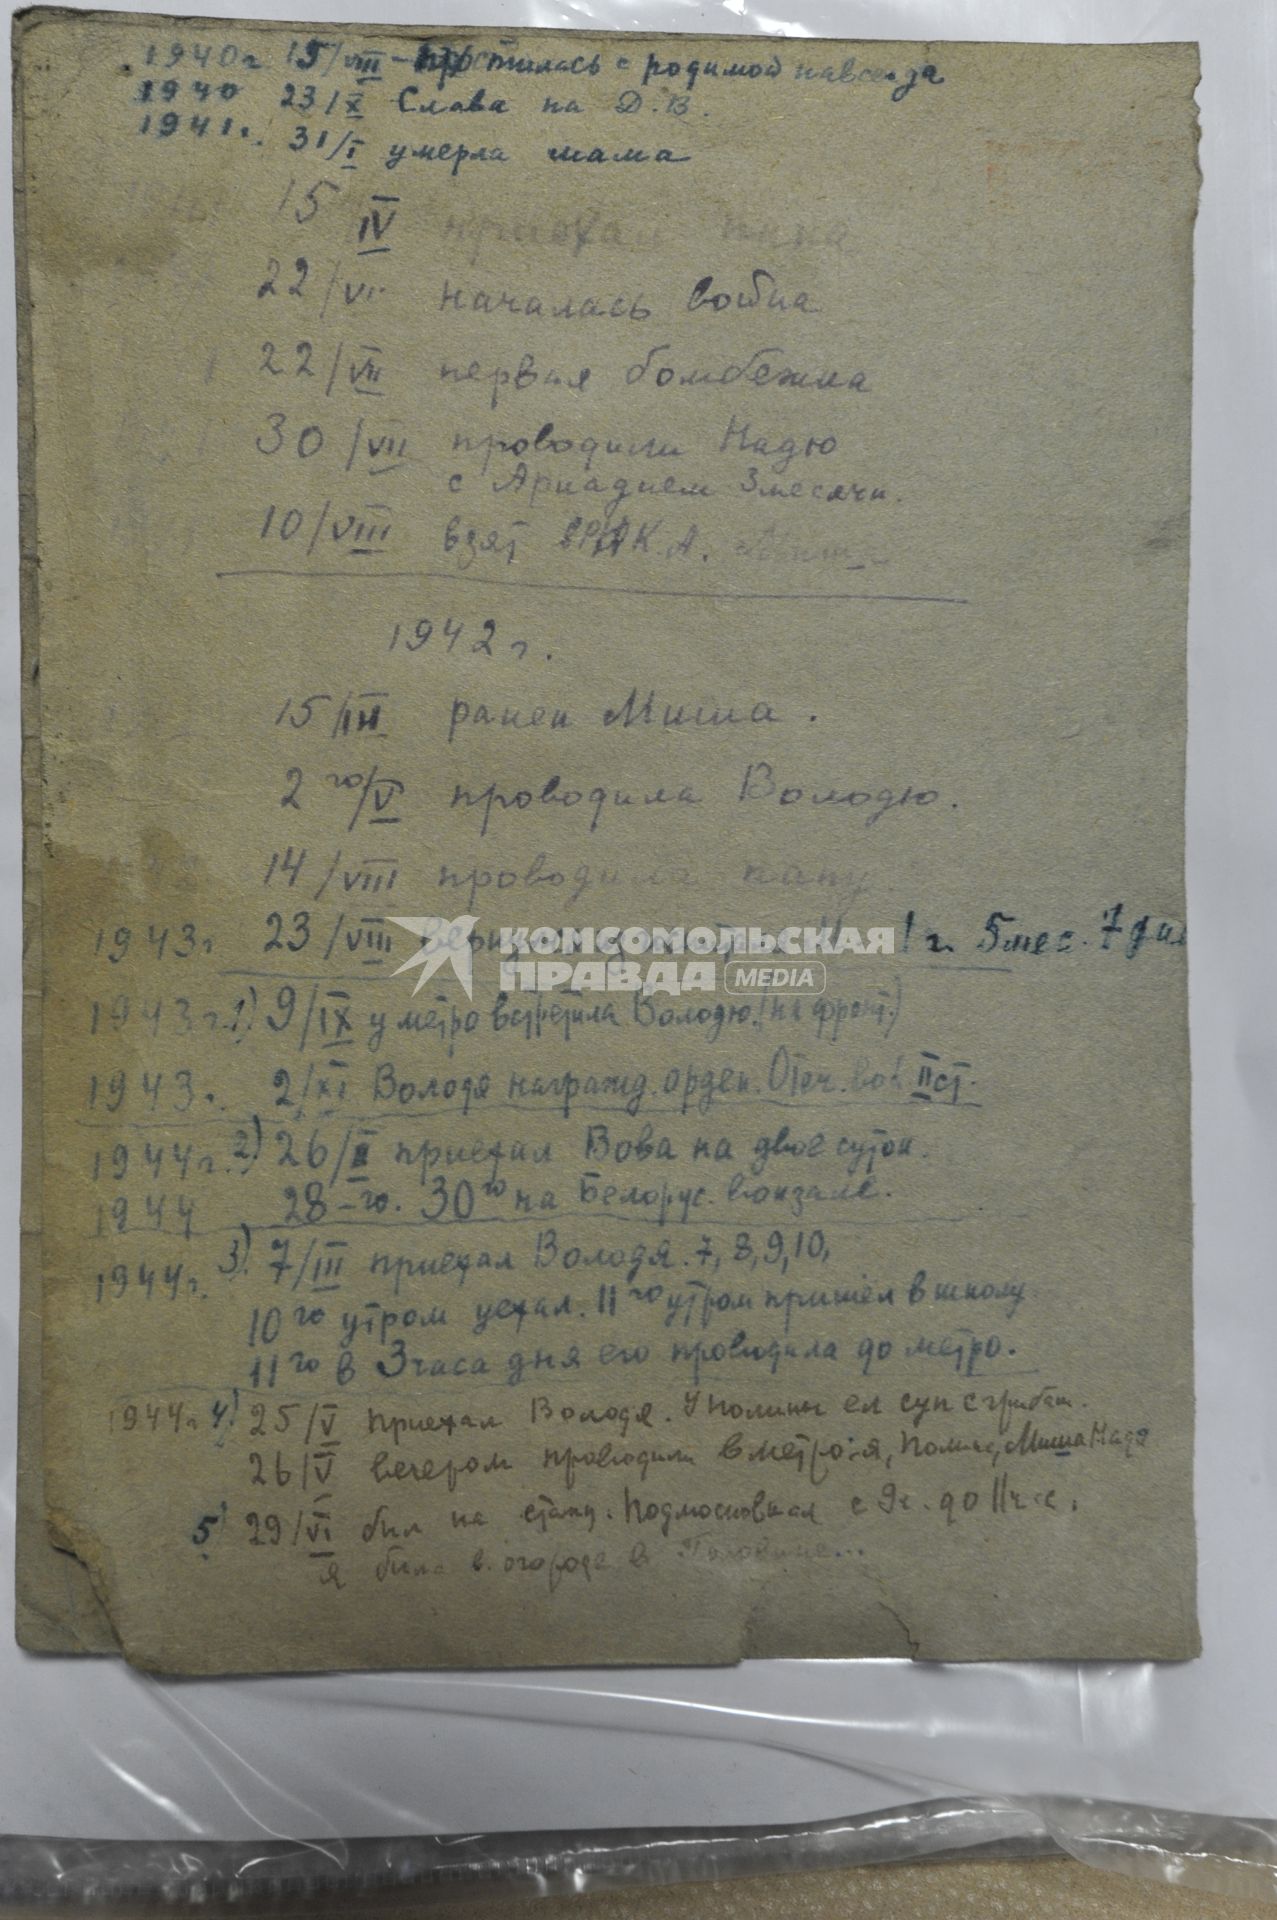 1940г. 15/VIII – простилась с родимой навсегда
1940 23/X Слава на Д.В.
1941г. 31/I умерла мама
15 IV приехал папа
22/VI началась война
22/VII первая бомбежка
30/VII проводили Надю
с Ариадием 3 месячн.
10/VIII взят в РККА. Миша
1942 г.
15/III ранен Миша.
2го/V проводила Володю.
14/VIII проводила папу.
1943 г. 23/VIII 1 г. 5 мес. 7 дн
КОМСОМОЛЬСКАЯ
ПРАВДА MEDIA
1943 г. 1) 9/IX у метро встретила Володю (на фронт.)
1943. 2/XI Володя награжд. орден. Отеч. вой. II ст.
1944 г. 2) 26/II приехал Вова на двое суток.
1944 28-го. 30го на Белорус. вокзале.
1944г. 3). 7/III приехал Володя. 7, 8, 9, 10,
10го утром уехал. 11го утром пришел в школу
11го в 3 часа дня его проводила до метро.
1944г 4) 25/V приехал Володя. У Полины ел суп с грибам.
26/V вечером проводили в метро: я, Полина, Миша Надя
5) 29/VI был на станц. Подмосковная с 9ч. до 11 ч.
я была в огороде в